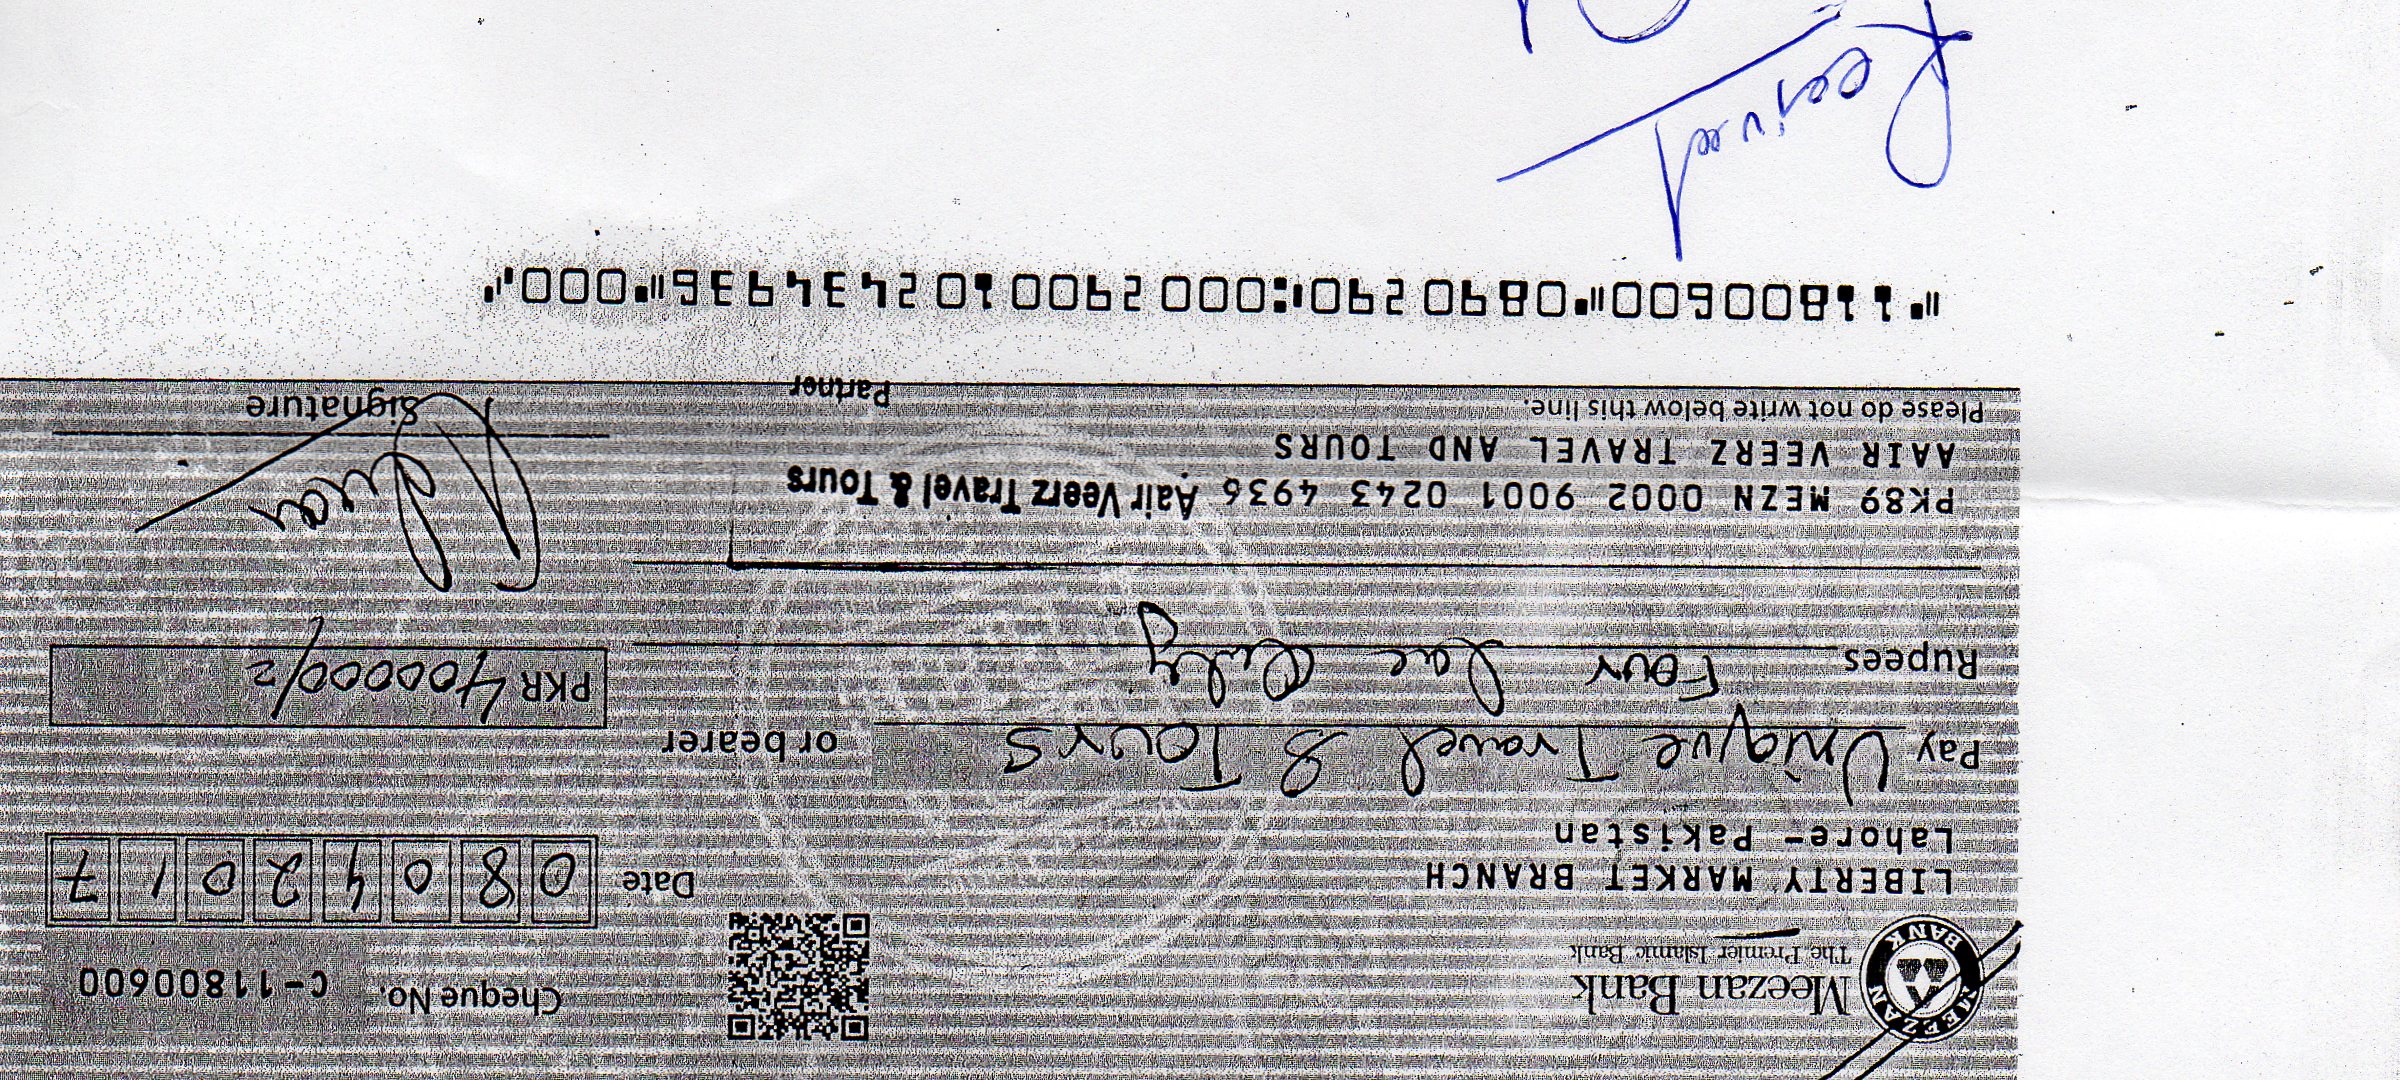 Meezan Bank
The Premier Islamic Bank
MEEZAN BANK
Cheque No. C-11800600
LIBERTY MARKET BRANCH
Lahore- Pakistan
Date 08042017
Pay Unique Travel & Tours or bearer
Rupees Four Lac Only
PKR 400000/=
PK89 MEZN 0002 9001 0243 4936 Aair Veerz Travel & Tours
AAIR VEERZ TRAVEL AND TOURS
Please do not write below this line.
Partner
Signature
⑈11800600⑈0890290⑆0002900102434936⑈000⑈
Received